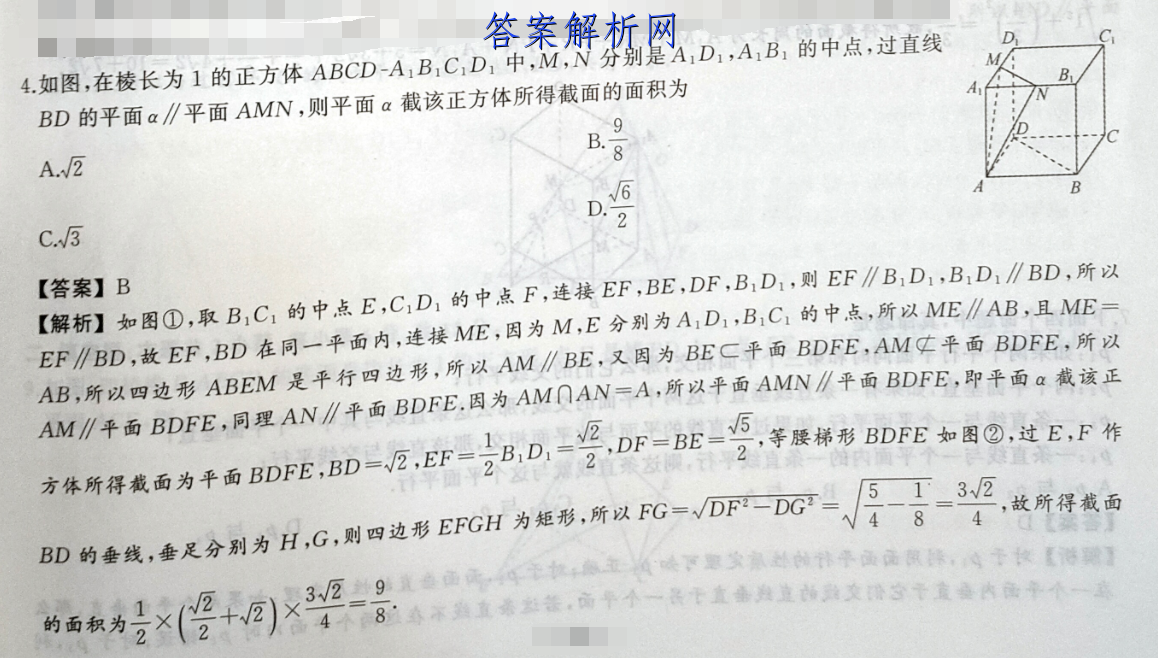 答案解析网
4.如图,在棱长为1的正方体ABCD-A₁B₁C₁D₁中,M,N分别是A₁D₁,A₁B₁的中点,过直线
BD的平面α∥平面AMN,则平面α截该正方体所得截面的面积为
A.√2
B.9/8
C.√3
D.√6/2
D₁ C₁
M
A₁ N B₁
D C
A B
【答案】B
【解析】如图①,取B₁C₁的中点E,C₁D₁的中点F,连接EF,BE,DF,B₁D₁,则EF∥B₁D₁,B₁D₁∥BD,所以
EF∥BD,故EF,BD在同一平面内,连接ME,因为M,E分别为A₁D₁,B₁C₁的中点,所以ME∥AB,且ME=
AB,所以四边形ABEM是平行四边形,所以AM∥BE,又因为BE⊂平面BDFE,AM⊄平面BDFE,所以
AM∥平面BDFE,同理AN∥平面BDFE.因为AM∩AN=A,所以平面AMN∥平面BDFE,即平面α截该正
方体所得截面为平面BDFE,BD=√2,EF=1/2B₁D₁=√2/2,DF=BE=√5/2,等腰梯形BDFE如图②,过E,F作
BD的垂线,垂足分别为H,G,则四边形EFGH为矩形,所以FG=√DF²-DG²=√5/4-1/8=3√2/4,故所得截面
的面积为1/2×(√2/2+√2)×3√2/4=9/8.